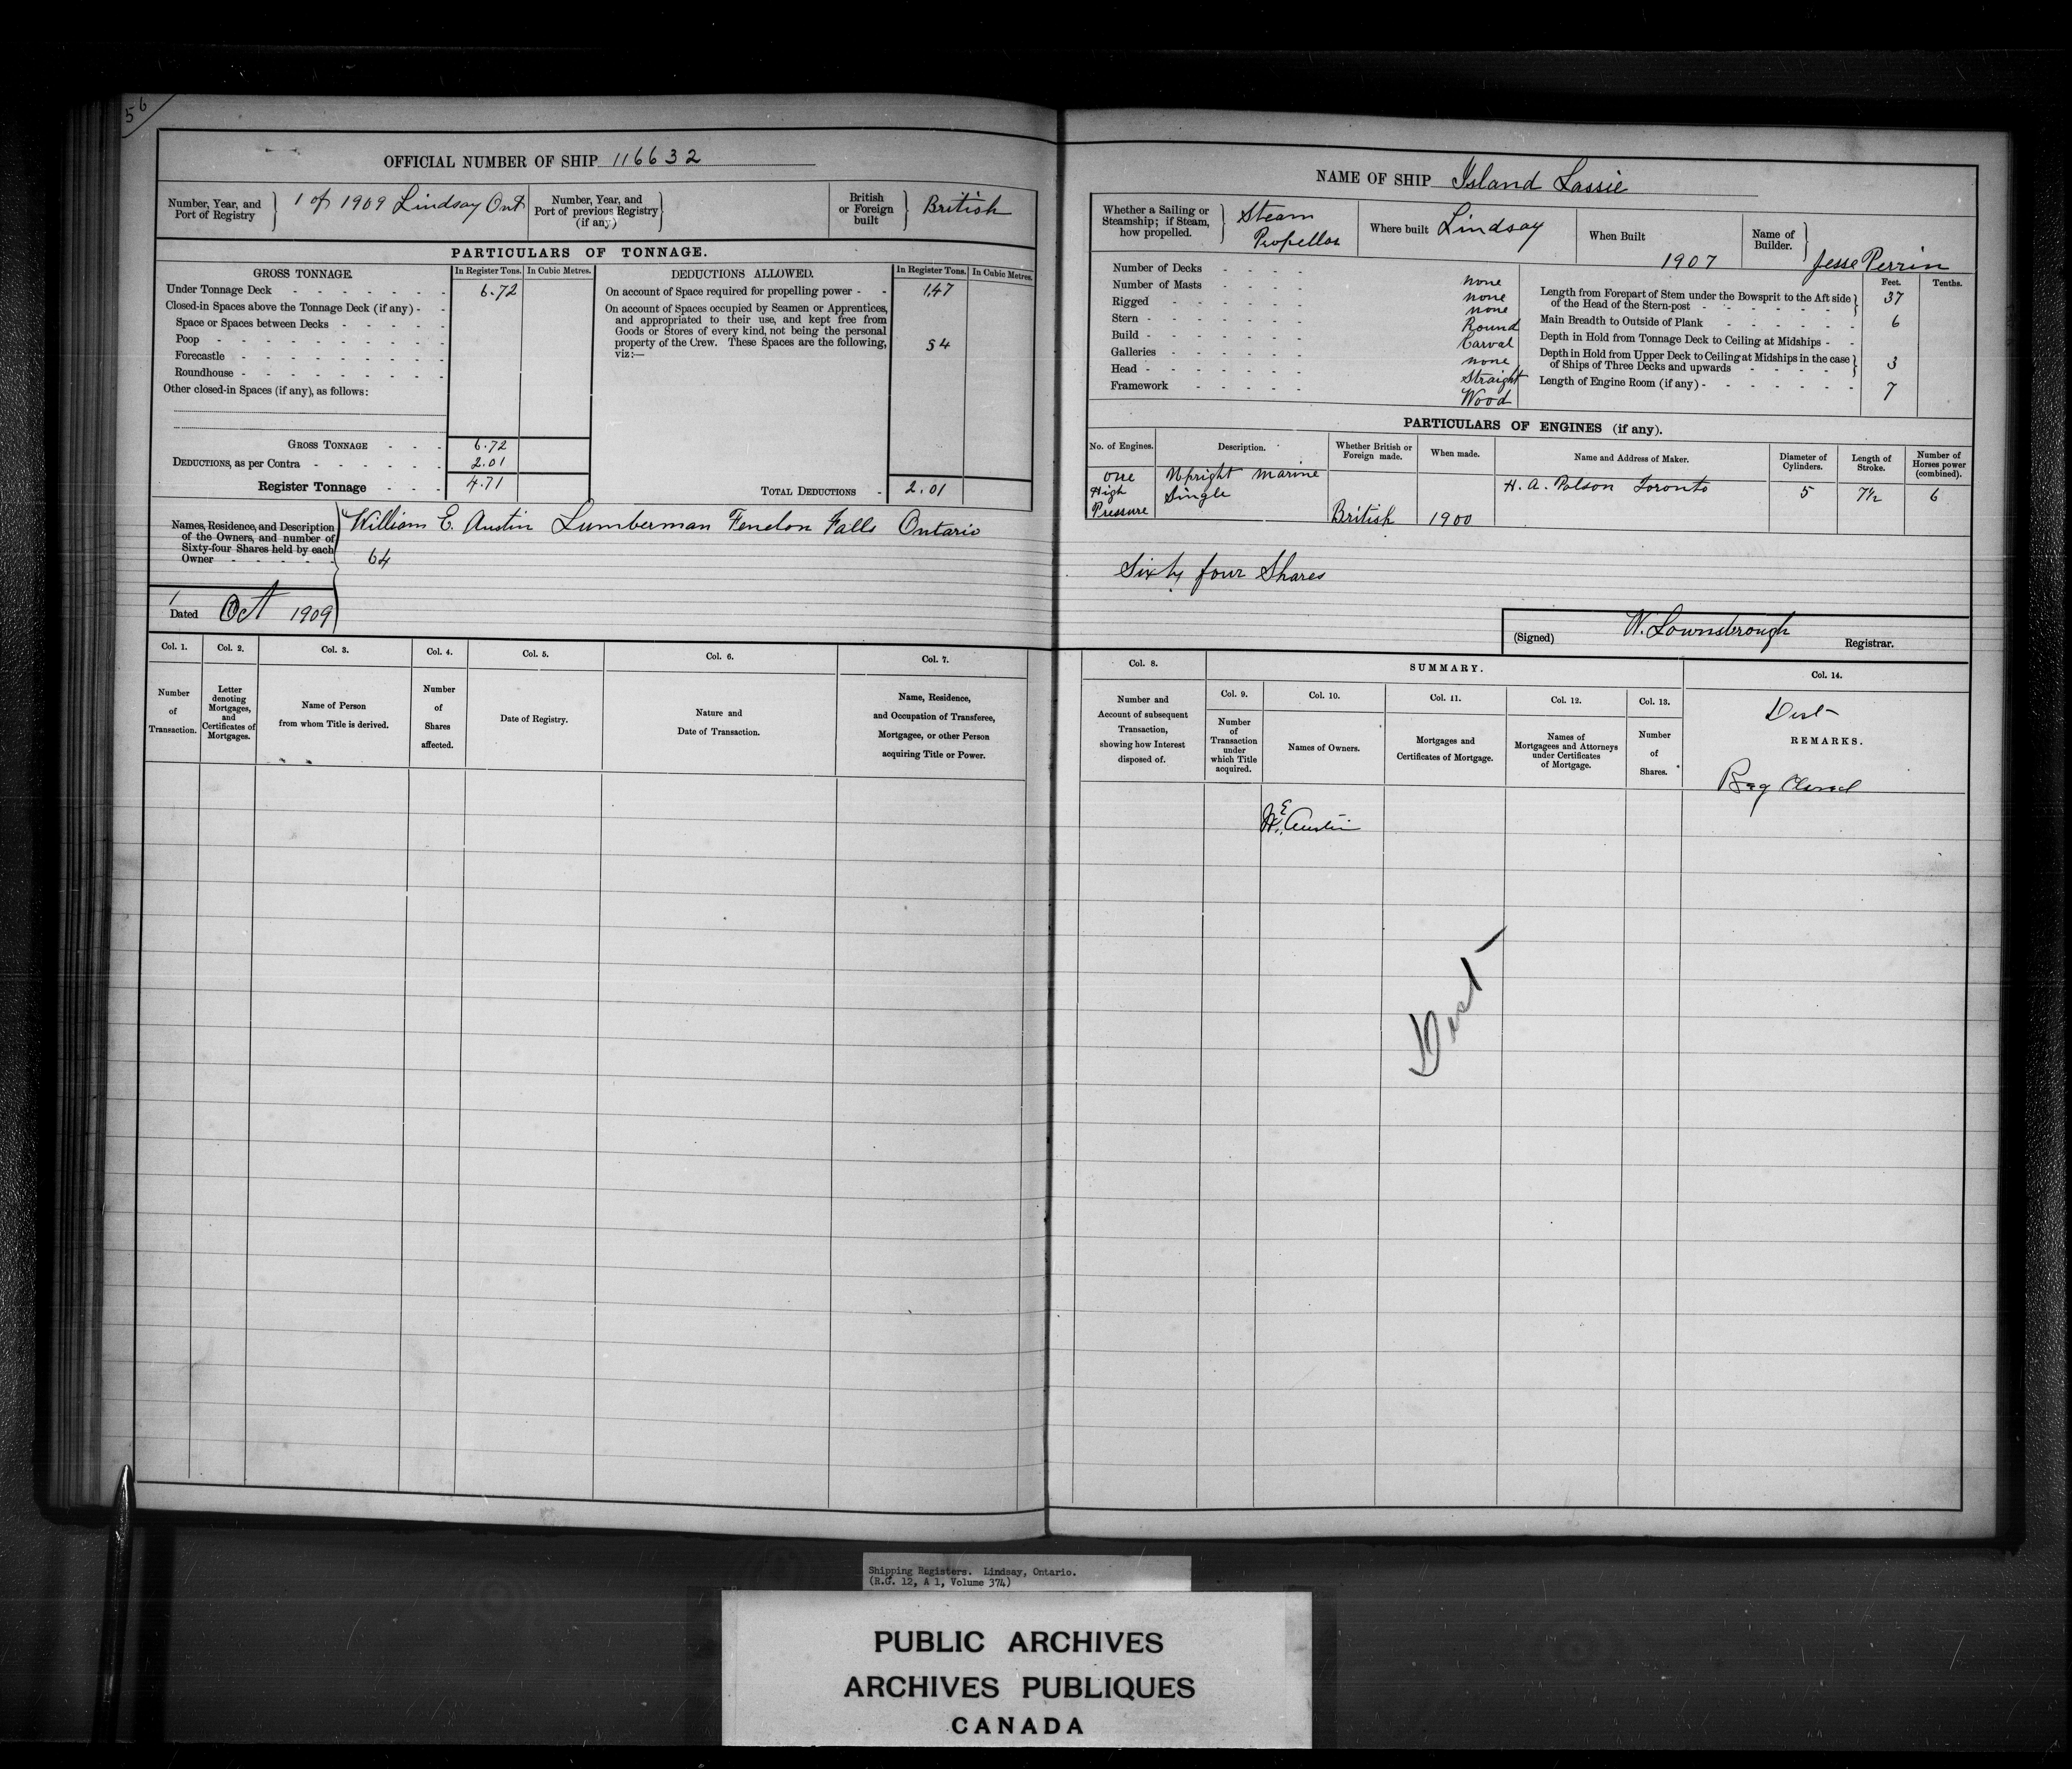 56
OFFICIAL NUMBER OF SHIP 116632
Number, Year, and
Port of Registry
1 of 1909 Lindsay Ont
Number, Year, and
Port of previous Registry
(if any)
British
or Foreign
built
British
PARTICULARS OF TONNAGE.
GROSS TONNAGE.
In Register Tons.
In Cubic Metres.
Under Tonnage Deck 6.72
Closed-in Spaces above the Tonnage Deck (if any)
Space or Spaces between Decks
Poop
Forecastle
Roundhouse
Other closed-in Spaces (if any), as follows:
GROSS TONNAGE 6.72
DEDUCTIONS, as per Contra 2.01
Register Tonnage 4.71
DEDUCTIONS ALLOWED.
In Register Tons.
In Cubic Metres.
On account of Space required for propelling power 1.47
On account of Spaces occupied by Seamen or Apprentices,
and appropriated to their use, and kept free from
Goods or Stores of every kind, not being the personal
property of the Crew. These Spaces are the following,
viz:—
54
TOTAL DEDUCTIONS 2.01
Names, Residence, and Description
of the Owners, and number of
Sixty-four Shares held by each
Owner
William E. Austin Lumberman Fenelon Falls Ontario
64
Dated 1 Oct 1909
Col. 1.
Number
of
Transaction.
Col. 2.
Letter
denoting
Mortgages,
and
Certificates of
Mortgages.
Col. 3.
Name of Person
from whom Title is derived.
Col. 4.
Number
of
Shares
affected.
Col. 5.
Date of Registry.
Col. 6.
Nature and
Date of Transaction.
Col. 7.
Name, Residence,
and Occupation of Transferee,
Mortgagee, or other Person
acquiring Title or Power.
NAME OF SHIP Island Lassie
Whether a Sailing or
Steamship; if Steam,
how propelled.
Steam
Propellor
Where built Lindsay
When Built
1907
Name of
Builder.
Jesse Perrin
Number of Decks none
Number of Masts none
Rigged none
Stern Round
Build Carval
Galleries none
Head Straight
Framework Wood
Feet.
Tenths.
Length from Forepart of Stem under the Bowsprit to the Aft side
of the Head of the Stern-post 37
Main Breadth to Outside of Plank 6
Depth in Hold from Tonnage Deck to Ceiling at Midships
Depth in Hold from Upper Deck to Ceiling at Midships in the case
of Ships of Three Decks and upwards 3
Length of Engine Room (if any) 7
PARTICULARS OF ENGINES (if any).
No. of Engines.
Description.
Whether British or
Foreign made.
When made.
Name and Address of Maker.
Diameter of
Cylinders.
Length of
Stroke.
Number of
Horses power
(combined).
one
High
Pressure
Upright marine
Single
British
1900
H. A. Polson Toronto
5
7½
6
Sixty four Shares
(Signed) W. Lownsbrough Registrar.
Col. 8.
Number and
Account of subsequent
Transaction,
showing how Interest
disposed of.
SUMMARY.
Col. 9.
Number
of
Transaction
under
which Title
acquired.
Col. 10.
Names of Owners.
Col. 11.
Mortgages and
Certificates of Mortgage.
Col. 12.
Names of
Mortgagees and Attorneys
under Certificates
of Mortgage.
Col. 13.
Number
of
Shares.
Col. 14.
Dist
REMARKS.
Reg Closed
W. E. Austin
Dist
Shipping Registers. Lindsay, Ontario.
(R.G. 12, A 1, Volume 374)
PUBLIC ARCHIVES
ARCHIVES PUBLIQUES
CANADA